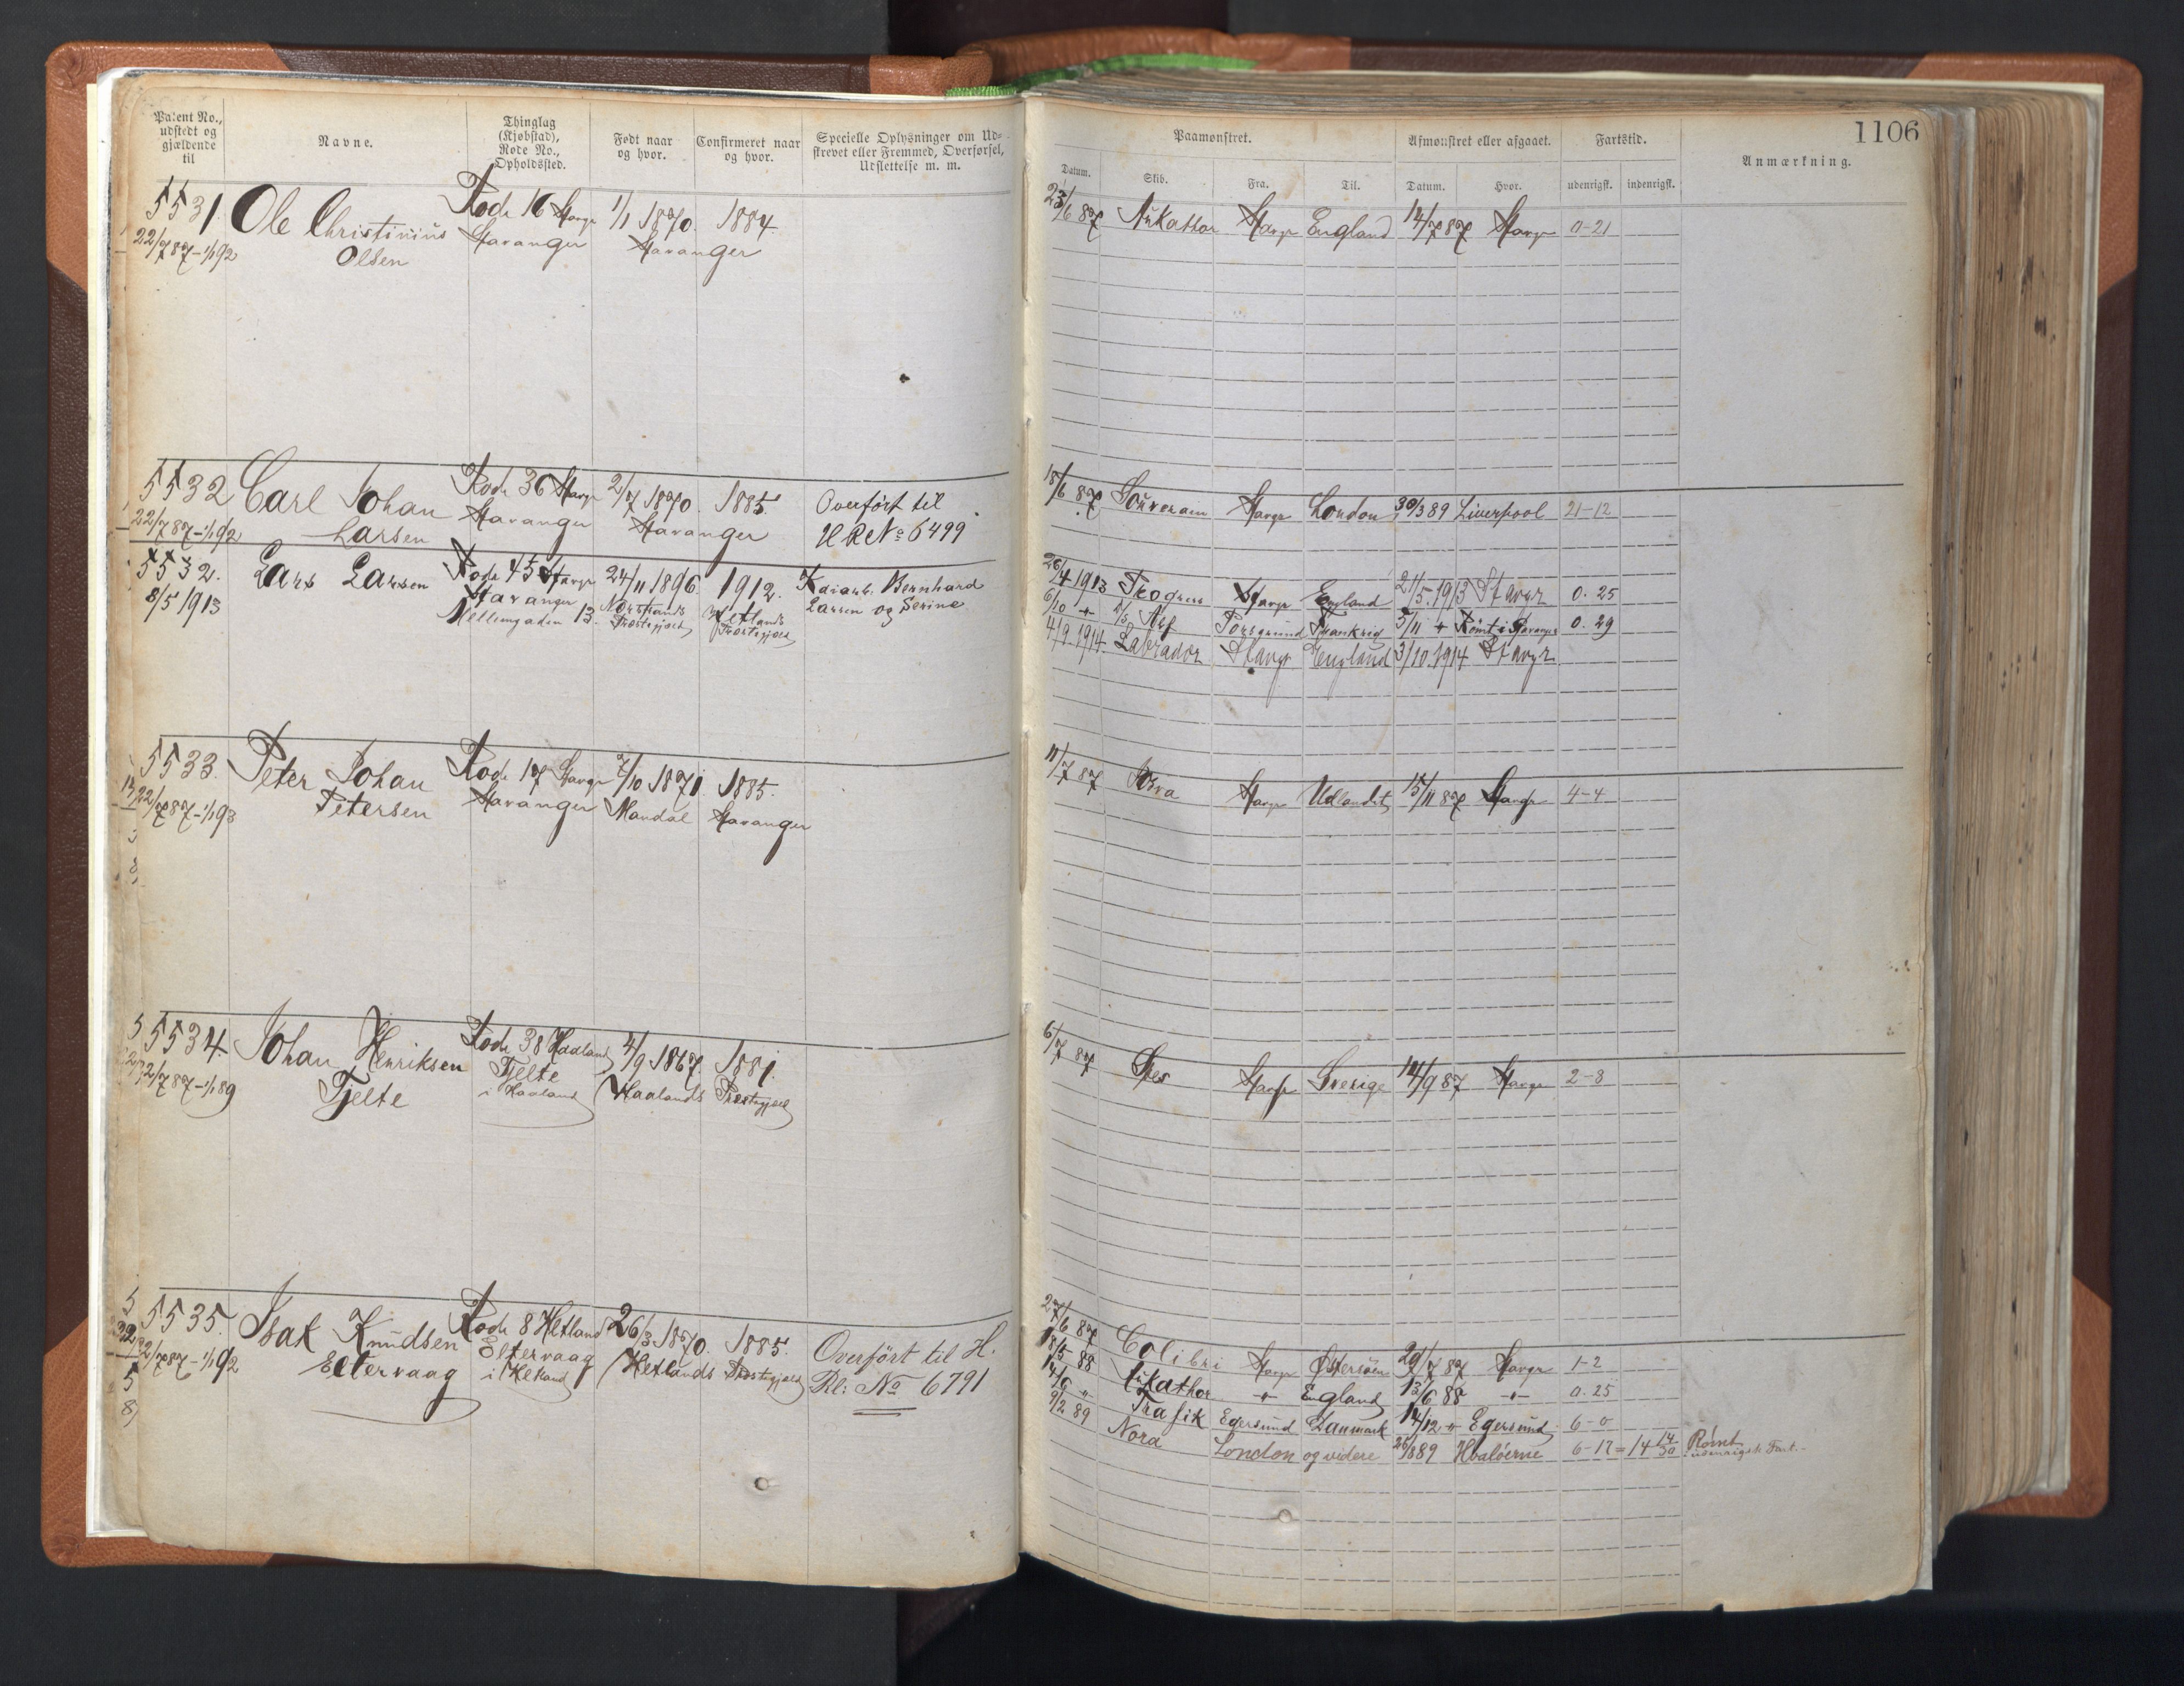 Patent No., udstedt og gjældende til
Navne.
Thinglag (Kjøbstad), Rode No., Opholdssted.
Født naar og hvor.
Confirmeret naar og hvor.
Specielle Oplysninger om Udskrevet eller Fremmed, Overførsel, Udslettelse m. m.
5531 Ole Christinius Rode 16 Stavgr 1/1 1870. 1884.
22/7 87-1/1 92 Olsen Stavanger Stavanger
5532 Carl Johan Rode 36 Stavgr 2/7 1870. 1885. Overført til
22/7 87-1/1 92 Larsen Stavanger Stavanger H R No 6499
5532. Lars Larsen Rode 45 Stavgr 24/11 1896. 1912. Kaiarb. Bernhard
8/5 1913 Stavanger Larsen og Serine
Mellemgaden 13. Nærstrands Præstegjæld Hetlands Præstegjæld
5533. Peter Johan Rode 17 Stavgr 7/10 1871 1885.
22/7 87-1/1 93 Petersen Stavanger Mandal Stavanger
5534. Johan Henriksen Rode 38 Haaland 4/9 1867. 1881.
22/7 87-1/1 89 Tjelte Tjelte i Haaland Haalands Præstegjæld
5535. Isak Knudsen Rode 8 Hetland 26/3 1870. 1885. Overført til H.
22/7 87-1/1 92 Eltervaag Eltervaag i Hetland Hetlands Præstegjæld Rl: No 6791
1106
Paamønstret.
Afmønstret eller afgaaet.
Fartstid.
Anmærkning.
Datum. Skib. Fra. Til. Datum. Hvor. udenrigsk. indenrigsk.
23/6 87 Stavgr England 14/7 87 Stavgr 0-21
18/6 87 Stavgr London 30/3 89 Liverpool 21-12
26/4 1913 Progress Stavgr England 21/5. 1913 Stavgr 0. 25
6/10 Porsgrund Frankrig 5/11 Rømt i 0. 29
4/9. 1914. Labrador Stavgr England 3/10. 1914 Stavgr
11/7 87 Stavgr Udlandet 15/11 87 Stavgr 4-4
6/7 87 Spes Stavgr Sverige 14/9 87 Stavgr 2-8
27/6 87 Colibri Stavgr Østersøen 29/7 87 Stavgr 1-2
18/5 88 Nikathor " England 13/6 88 " 0. 25
14/6 " Trafik Egersund Danmark 14/12 " Egersund 6-0
9/2 89 Nora London og videre 89 Hvaløerne 6-17 = 14 14/30 Rømt
udenrigsk Fart.